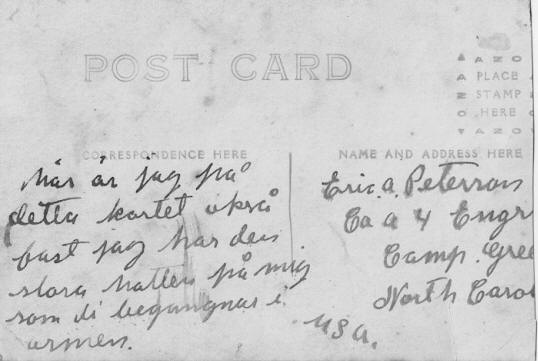 POST CARD
AZO
A PLACE
Z STAMP
O HERE
AZO
CORRESPONDENCE HERE
NAME AND ADDRESS HERE
här är jag på
detta kortet också
fast jag har den
stora hatten på mig
som di begagnar i
armen.
Eric. A. Peterson
Co A 4 Engr
Camp. Gree
North Caro
USA.